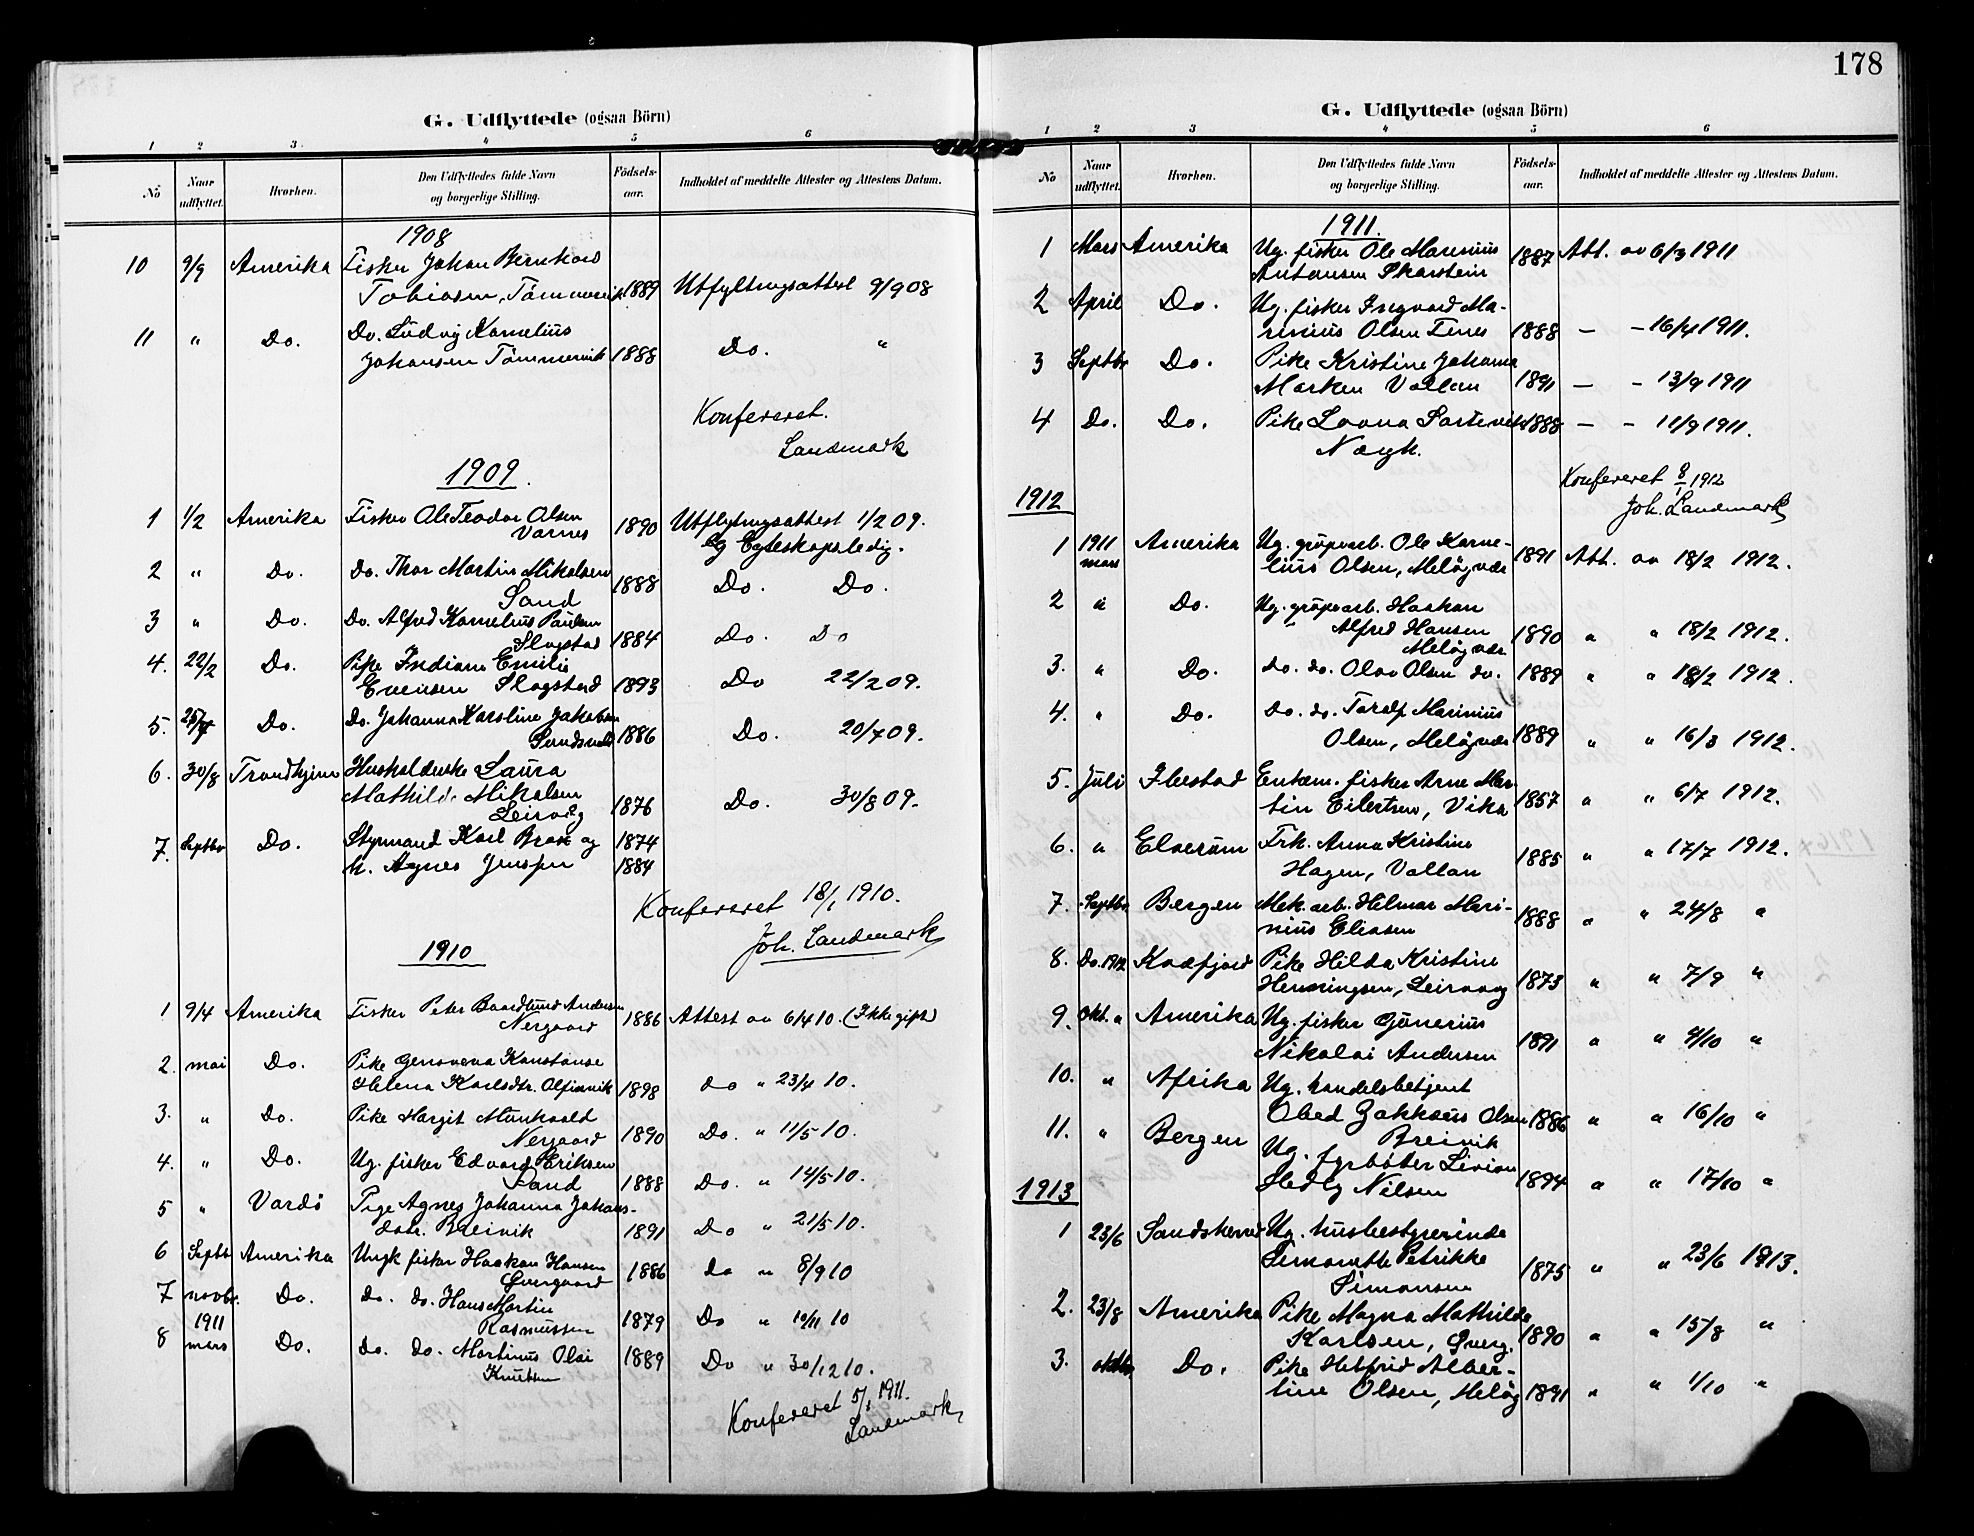 178
G. Udflyttede (ogsaa Börn)
1 2 3 4 5 6
No Naar udflyttet. Hvorhen. Den Udflyttedes fulde Navn og borgerlige Stilling. Födsels-aar. Indholdet af meddelte Attester og Attestens Datum.
1908
10 9/9 Amerika Fisker Johan Bernhard
Tobiasen, Tömmervik 1889 Utflytningsattest 9/9 08
11 " Do. Do. Ludvig Kornelius
Johansen Tömmervik 1888 Do. "
Konfereret.
Landmark
1909.
1 1/2 Amerika Fisker Ole Teodor Olsen
Varnes 1890 Utflytningsattest 1/2 09.
og Egteskapsledig.
2 " Do. Do. Thor Martin Mikalsen
Sand 1888 Do. Do.
3 " Do. Do. Alfred Kornelius Paulsen
Slagstad 1884 Do. Do
4. 22/2 Do. Pike Indiane Emilie
Evensen Slagstad 1893 Do 22/2 09.
5. Do. Do. Johanna Karoline Jakobsen
1886 Do. 20/7 09.
6. 30/8 Trondhjem Husholderske Laura
Mathilde Mikalsen
Leirvåg 1876 Do. 30/8 09.
7. Septbr Do. Styrmand Karl Brox og 1874
h. Agnes Jensen 1884
Konfereret 18/1 1910.
Joh. Landmark
1910
1 9/4 Amerika Fisker Peter Baardlund Andersen
Nergaard 1886 Attest av 6/4 10. (Ikke gift)
2. mai Do. Pike Genoveva Konstanse
Helena Karlsdtr. Olfinvik 1898 do " 23/4 10.
3. " Do. Pike Margit Munkvold
Nergaard 1890 Do. " 11/5 10.
4. " Do. Ug. fisker Edvard Eriksen
Sand 1888 Do. " 14/5 10.
5 " Vardö Pige Agnes Johanna Johans-
datr. Breivik 1891 Do " 21/5 10.
6 Septbr Amerika Ungk fisker Haakon Hansen
Övergaard 1886 do " 8/9 10
7 novbr. Do. do. do. Hans Martin
Rasmussen 1879 Do " 10/11 10
8 1911 mars Do. do. do. Martinus Olai
Knutsen 1889 Do " 30/12 10.
Konfereret 5/1 1911.
Landmark
G. Udflyttede (ogsaa Börn)
1 2 3 4 5 6
No Naar udflyttet. Hvorhen. Den Udflyttedes fulde Navn og borgerlige Stilling. Födsels-aar. Indholdet af meddelte Attester og Attestens Datum.
1911.
1 Mars Amerika Ug. fisker Ole Marinius
Antonsen Skarstein 1887 Att. av 6/3 1911
2 April Do. Ug. fisker Ingvard Ma-
rinius Olsen Finnes 1888 — - 16/4 1911.
3 Septbr Do. Pike Kristine Johanna
Marken Vollan 1891 — - 13/9 1911
4 Do. Do. Pike Lovna 1888 — - 11/9 1911.
Konfereret 8/1 1912
Joh. Landmark
1912
1 1911 mars Amerika Ug. grüpearb. Ole Korne-
lius Olsen, Meløyvær 1891 Att. av 18/2 1912.
2 " Do. Ug. grüpearb. Haakon
Alfred Hansen
Meløyvær 1890 " " 18/2 1912.
3. " Do. do. do. Olav Olsen do. 1889 " " 18/2 1912.
4. " Do. Do. do. Toralf Marinius
Olsen, Meløyvær 1889 " " 16/3 1912.
5. Juli Ibestad Enkem. fisker Arne Mar-
tin Eilertsen, Vika 1857 " " 6/7 1912.
6. " Elverum Frk. Anna Kristine
Hagen, Vollan 1885 " " 17/7 1912.
7. Septbr Bergen Mek. arb. Helmar Mari-
nius Eliasen 1888 " " 24/8 "
8. Do. 1912 Kvæfjord Pike Hilda Kristine
Henningsen, Leirvaag 1873 " " 7/9 "
9. Okt. " Amerika Ug. fisker Gunerius
Nikolai Andersen 1891 " " 4/10 "
10. " Afrika Ug. handelsbetjent
Obed Zakkæus Olsen 1886 " " 16/10 "
Breivik
11. " Bergen Ug. fyrbøter
Hedly Nilsen 1894 " " 17/10 "
1913
1 23/6 Sandskerved Ug. husbestyrerinde
Simonette Petrikke
Simonsen 1875 " " 23/6 1913.
2. 23/8 Amerika Pike Magna Mathilde
Karlsen, Øverg. 1890 " " 15/8 "
3. Do. Pike Helfrid Alber-
tine Olsen, Meløy 1891 " " 1/10 "